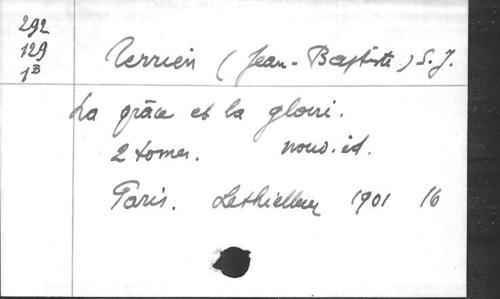 292
129
1B
Terrien (Jean-Baptiste) S. J.
La grâce et la gloire.
2 tomes. nouv. éd.
Paris. Lethielleux 1901 16